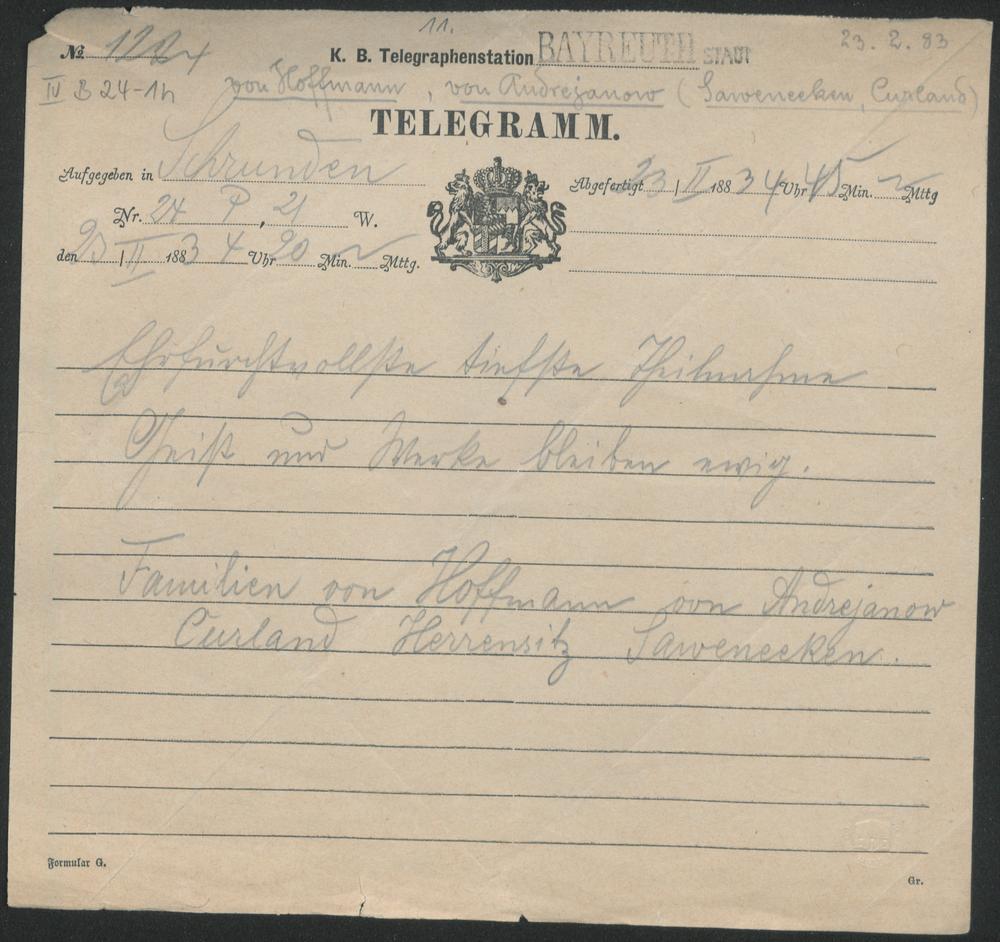 11.
№ 1224
K. B. Telegraphenstation BAYREUTH STADT
23. 2. 83
IV B 24-1h von Hoffmann, von Andrejanow (Sawenecken, Curland)
TELEGRAMM.
Aufgegeben in Schrunden
Nr. 24 P, 21 W.
den 23/II 1883 4 Uhr 20 Min. N Mttg.
Abgefertigt 23/II 1883 4 Uhr 45 Min. N Mttg
Ehrfurchtvollste tiefste Theilnahme
Geist und Werke bleiben ewig.
Familien von Hoffmann von Andrejanow
Curland Herrensitz Sawenecken.
Formular G.
Gr.